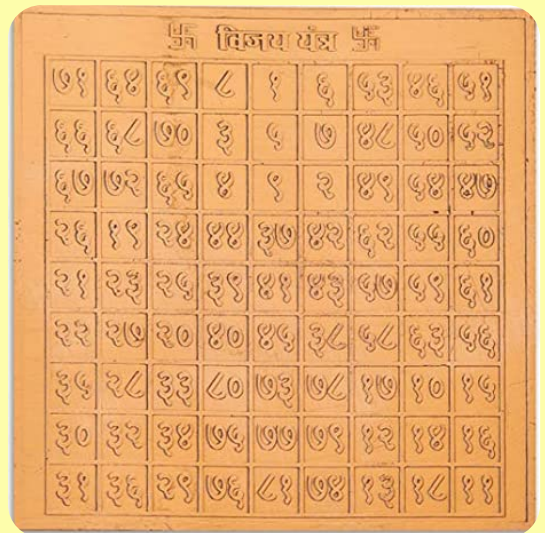 卐 विजय यंत्र 卐
७१ ६४ ६९ ८ १ ६ ५३ ४६ ५१
६६ ६८ ७० ३ ५ ७ ४८ ५० ५२
६७ ७२ ६५ ४ ९ २ ४९ ५४ ४७
२६ १९ २४ ४४ ३७ ४२ ६२ ५५ ६०
२१ २३ २५ ३९ ४१ ४३ ५७ ५९ ६१
२२ २७ २० ४० ४५ ३८ ५८ ६३ ५६
३५ २८ ३३ ८० ७३ ७८ १७ १० १५
३० ३२ ३४ ७५ ७७ ७९ १२ १४ १६
३१ ३६ २९ ७६ ८१ ७४ १३ १८ ११